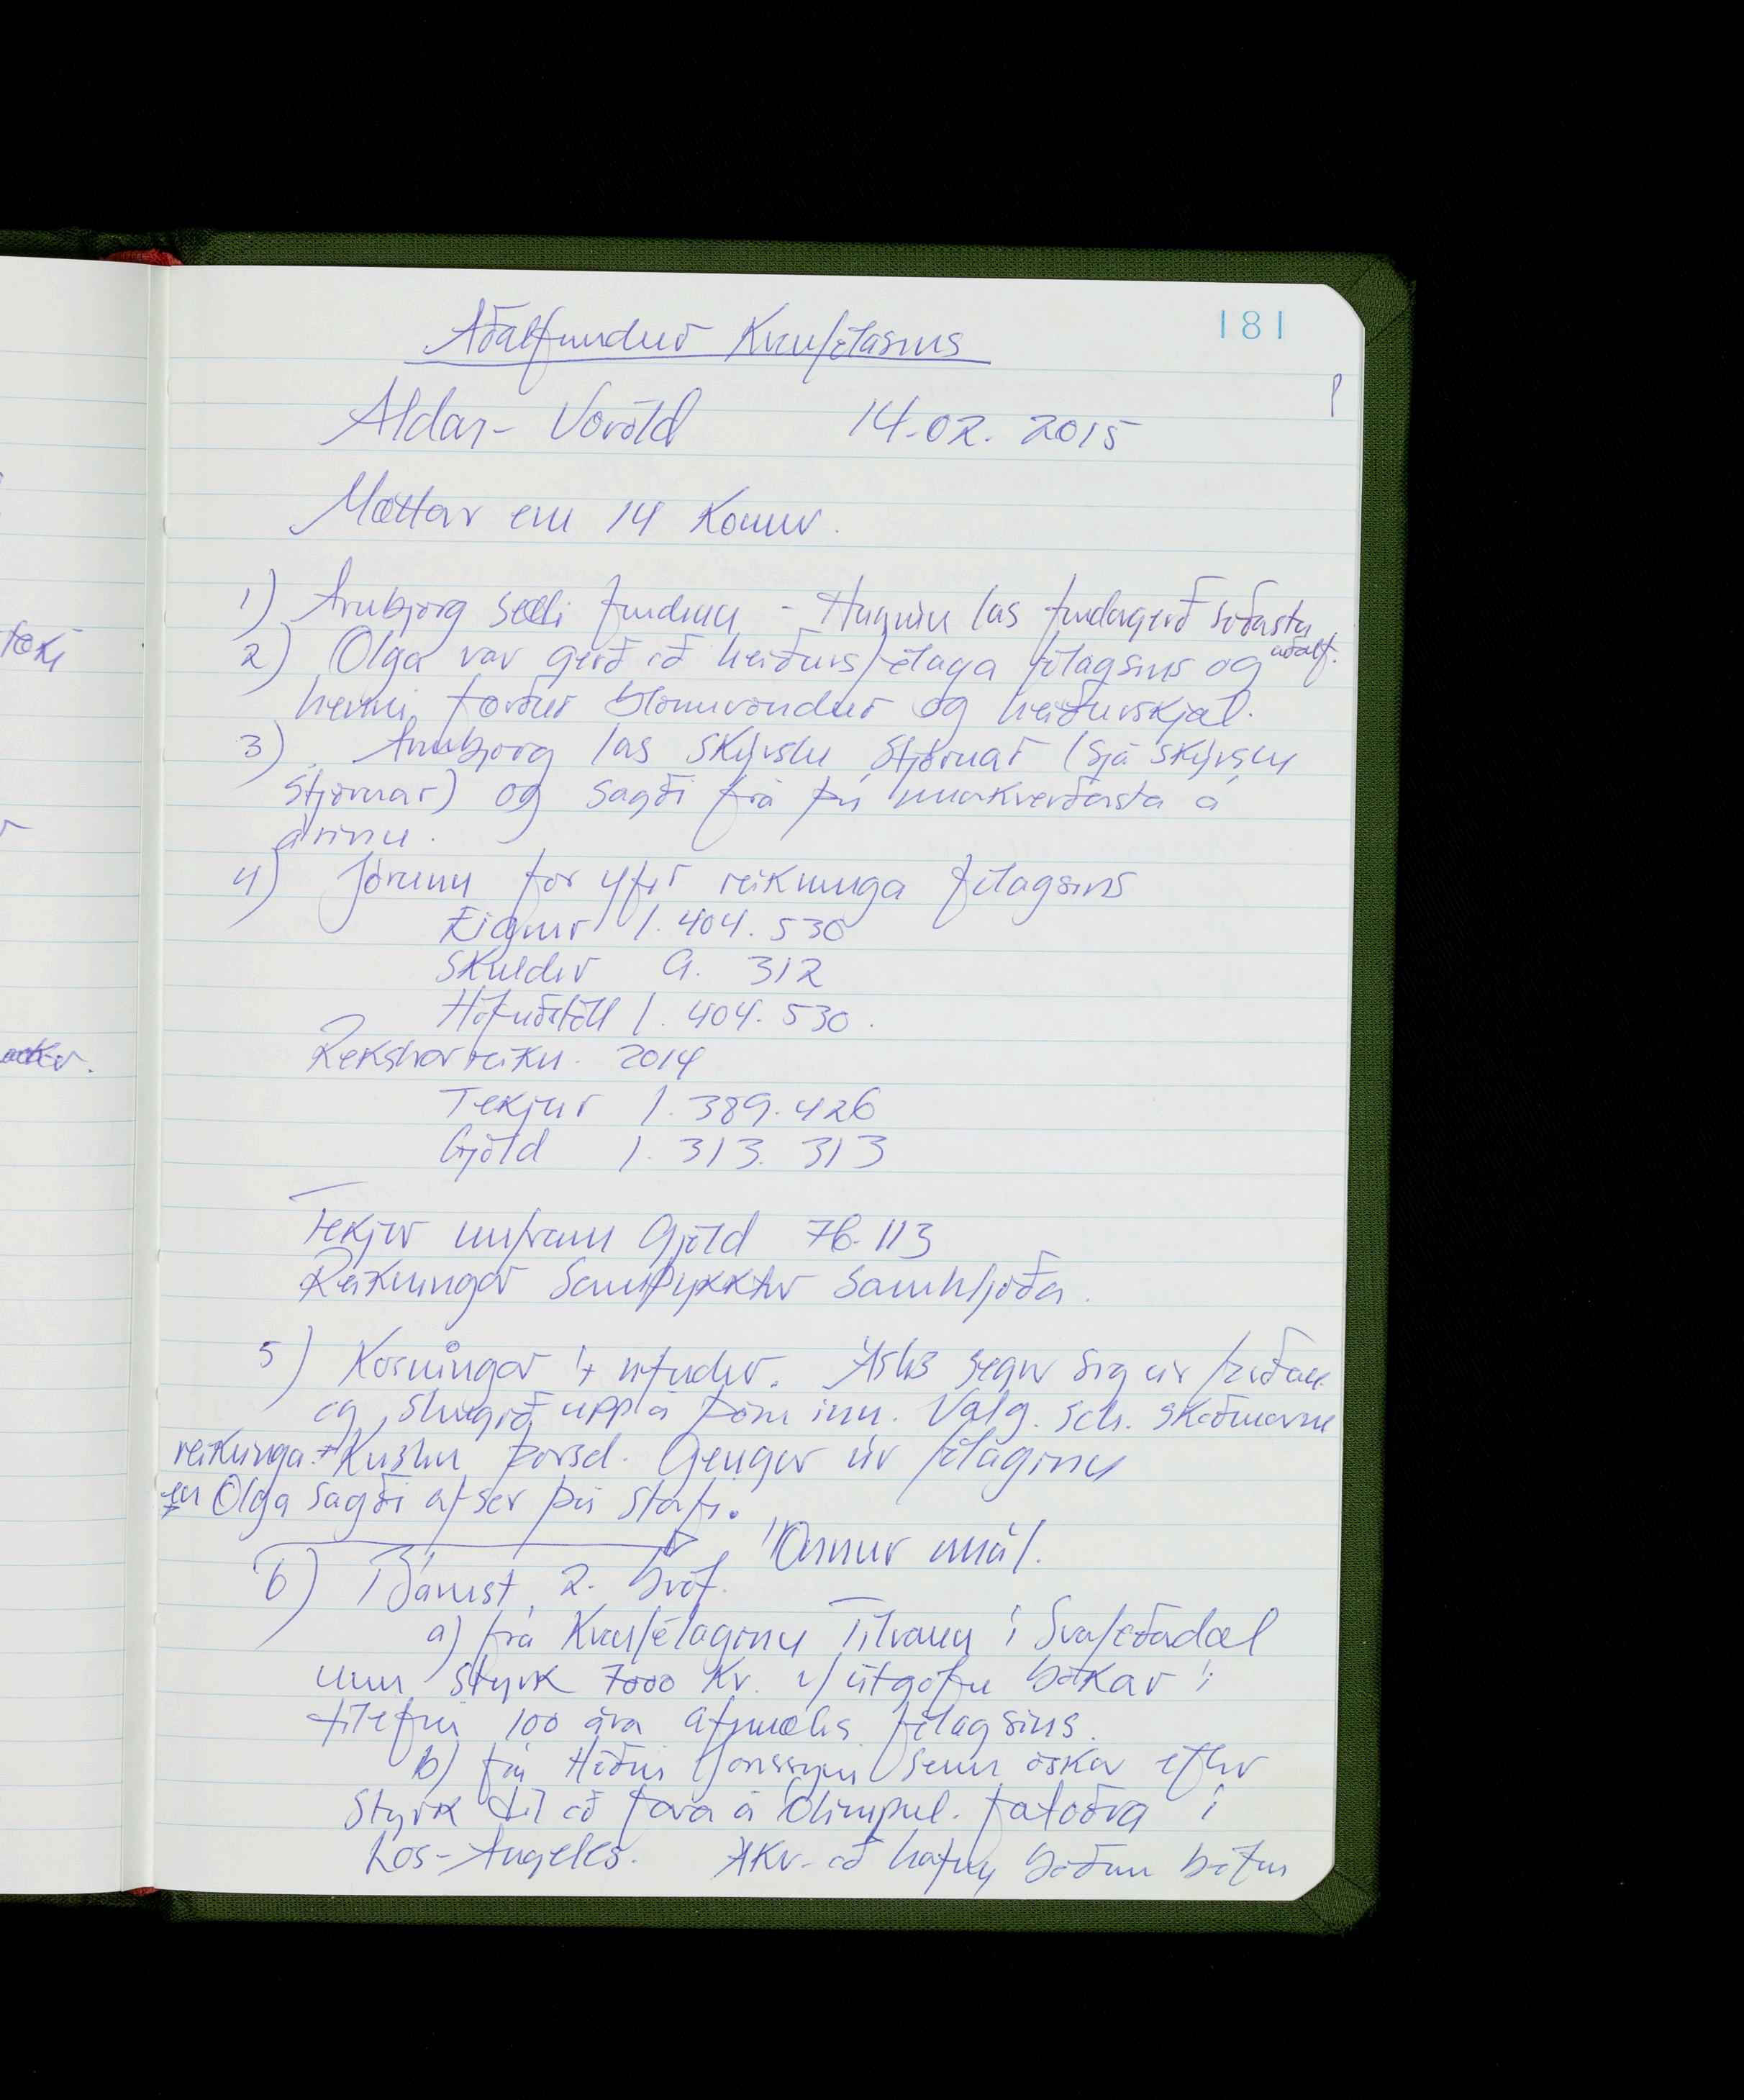 181
Aðalfundur Kvenfélagsins
Aldan-Voröld 14.02. 2015
Mættar eru 14 Konur.
1) Arnbjörg setti fundinn - Huginn las fundagerð síðasta
aðalf.
2) Olga var gerð að heiðursfélaga félagsins og
henni færður blómvöndur og heiðurskjal.
3) Arnbjörg las skýrslu stjórnar (sjá skýrslu
stjórnar) og sagði frá því markverðasta á
árinu.
4) Jórunn fór yfir reikninga félagsins
Eignir 1.404.530
Skuldir 9.312
Höfuðstóll 1.404.530.
Rekstrarreikn. 2014
Tekjur 1.389.426
Gjöld 1.313.313
Tekjur umfram Gjöld 76.113
Reikningar Samþykktir Samhljóða.
5) Kosningar í nefndir. segir sig úr
og stungið uppá inn. Valg. Sch. skoðunarm
reikninga. Þorsd. Gengur úr félaginu
en Olga sagði af sér því starfi.
Önnur mál.
6) Bárust 2. bréf.
a) frá Kvenfélaginu Tilraun í Svarfaðadal
um styrk 7000 Kr. v/útgáfu bókar í
tilefni 100 ára afmælis félagsins.
b) frá Jónssyni sem óskar eftir
Styrk til að fara á Ólimpul. fatlaðra í
Los-Angeles. Ákv. að hafna báðum
toki